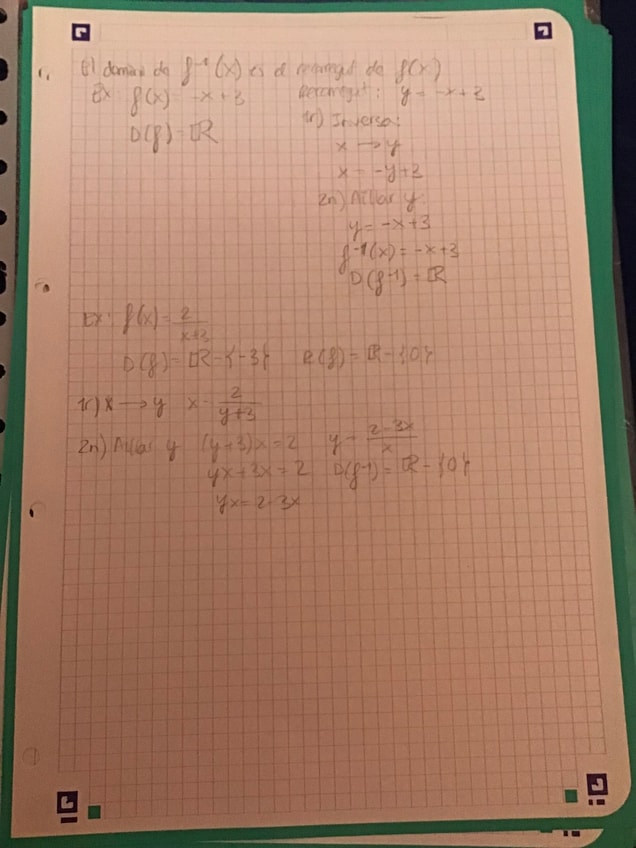 El domini de f⁻¹(x) és el recorregut de f(x)
Ex: f(x) = -x+3
D(f) = ℝ
Recorregut: y = -x+3
1r) Inversa:
x → y
x = -y+3
2n) Aïllar y
y = -x+3
f⁻¹(x) = -x+3
D(f⁻¹) = ℝ
Ex: f(x) = 2/(x+3)
D(f) = ℝ-{-3} R(f) = ℝ-{0}
1r) x → y x = 2/(y+3)
2n) Aïllar y (y+3)x = 2
yx+3x = 2
yx = 2-3x
y = (2-3x)/x
D(f⁻¹) = ℝ-{0}